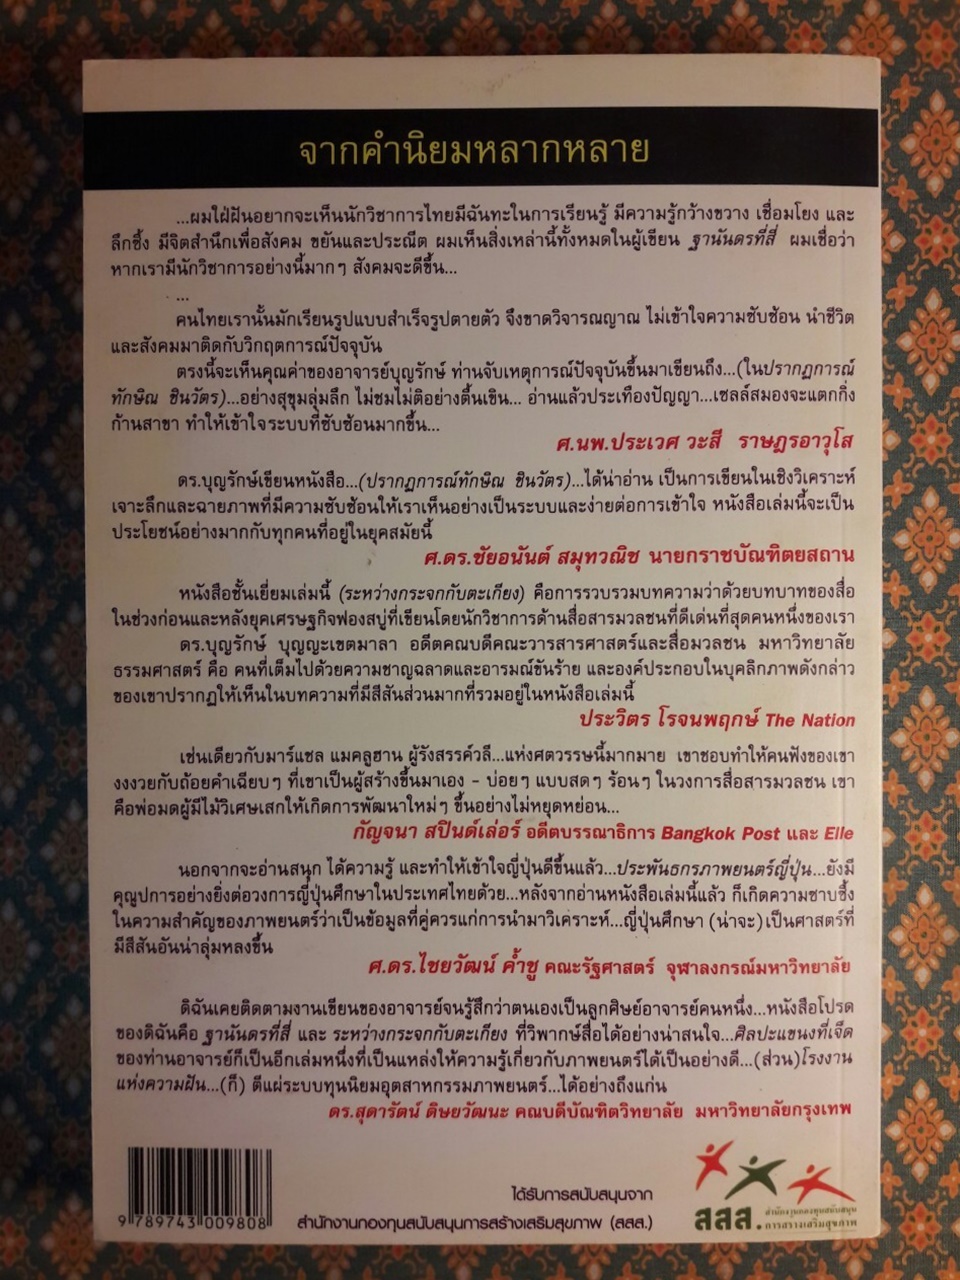 จากคำนิยมหลากหลาย
...ผมใฝ่ฝันอยากจะเห็นนักวิชาการไทยมีฉันทะในการเรียนรู้ มีความรู้กว้างขวาง เชื่อมโยง และ
ลึกซึ้ง มีจิตสำนึกเพื่อสังคม ขยันและประณีต ผมเห็นสิ่งเหล่านี้ทั้งหมดในผู้เขียน ฐานันดรที่สี่ ผมเชื่อว่า
หากเรามีนักวิชาการอย่างนี้มากๆ สังคมจะดีขึ้น...
...
คนไทยเรานั้นมักเรียนรูปแบบสำเร็จรูปตายตัว จึงขาดวิจารณญาณ ไม่เข้าใจความซับซ้อน นำชีวิต
และสังคมมาติดกับวิกฤตการณ์ปัจจุบัน
ตรงนี้จะเห็นคุณค่าของอาจารย์บุญรักษ์ ท่านจับเหตุการณ์ปัจจุบันขึ้นมาเขียนถึง...(ในปรากฏการณ์
ทักษิณ ชินวัตร)...อย่างสุขุมลุ่มลึก ไม่ชมไม่ติอย่างตื้นเขิน... อ่านแล้วประเทืองปัญญา...เซลล์สมองจะแตกกิ่ง
ก้านสาขา ทำให้เข้าใจระบบที่ซับซ้อนมากขึ้น...
ศ.นพ.ประเวศ วะสี ราษฎรอาวุโส
ดร.บุญรักษ์เขียนหนังสือ...(ปรากฏการณ์ทักษิณ ชินวัตร)...ได้น่าอ่าน เป็นการเขียนในเชิงวิเคราะห์
เจาะลึกและฉายภาพที่มีความซับซ้อนให้เราเห็นอย่างเป็นระบบและง่ายต่อการเข้าใจ หนังสือเล่มนี้จะเป็น
ประโยชน์อย่างมากกับทุกคนที่อยู่ในยุคสมัยนี้
ศ.ดร.ชัยอนันต์ สมุทวณิช นายกราชบัณฑิตยสถาน
หนังสือชั้นเยี่ยมเล่มนี้ (ระหว่างกระจกกับตะเกียง) คือการรวบรวมบทความว่าด้วยบทบาทของสื่อ
ในช่วงก่อนและหลังยุคเศรษฐกิจฟองสบู่ที่เขียนโดยนักวิชาการด้านสื่อสารมวลชนที่ดีเด่นที่สุดคนหนึ่งของเรา
ดร.บุญรักษ์ บุญญะเขตมาลา อดีตคณบดีคณะวารสารศาสตร์และสื่อมวลชน มหาวิทยาลัย
ธรรมศาสตร์ คือ คนที่เต็มไปด้วยความชาญฉลาดและอารมณ์ขันร้าย และองค์ประกอบในบุคลิกภาพดังกล่าว
ของเขาปรากฏให้เห็นในบทความที่มีสีสันส่วนมากที่รวมอยู่ในหนังสือเล่มนี้
ประวิตร โรจนพฤกษ์ The Nation
เช่นเดียวกับมาร์แชล แมคลูฮาน ผู้รังสรรค์วลี...แห่งศตวรรษนี้มากมาย เขาชอบทำให้คนฟังของเขา
งงงวยกับถ้อยคำเฉียบๆ ที่เขาเป็นผู้สร้างขึ้นมาเอง - บ่อยๆ แบบสดๆ ร้อนๆ ในวงการสื่อสารมวลชน เขา
คือพ่อมดผู้มีไม้วิเศษเสกให้เกิดการพัฒนาใหม่ๆ ขึ้นอย่างไม่หยุดหย่อน...
กัญจนา สปินด์เล่อร์ อดีตบรรณาธิการ Bangkok Post และ Elle
นอกจากจะอ่านสนุก ได้ความรู้ และทำให้เข้าใจญี่ปุ่นดีขึ้นแล้ว...ประพันธกรภาพยนตร์ญี่ปุ่น...ยังมี
คุณูปการอย่างยิ่งต่อวงการญี่ปุ่นศึกษาในประเทศไทยด้วย...หลังจากอ่านหนังสือเล่มนี้แล้ว ก็เกิดความซาบซึ้ง
ในความสำคัญของภาพยนตร์ว่าเป็นข้อมูลที่คู่ควรแก่การนำมาวิเคราะห์...ญี่ปุ่นศึกษา (น่าจะ)เป็นศาสตร์ที่
มีสีสันอันน่าลุ่มหลงขึ้น
ศ.ดร.ไชยวัฒน์ ค้ำชู คณะรัฐศาสตร์ จุฬาลงกรณ์มหาวิทยาลัย
ดิฉันเคยติดตามงานเขียนของอาจารย์จนรู้สึกว่าตนเองเป็นลูกศิษย์อาจารย์คนหนึ่ง...หนังสือโปรด
ของดิฉันคือ ฐานันดรที่สี่ และ ระหว่างกระจกกับตะเกียง ที่วิพากษ์สื่อได้อย่างน่าสนใจ...ศิลปะแขนงที่เจ็ด
ของท่านอาจารย์ก็เป็นอีกเล่มหนึ่งที่เป็นแหล่งให้ความรู้เกี่ยวกับภาพยนตร์ได้เป็นอย่างดี...(ส่วน)โรงงาน
แห่งความฝัน...(ก็) ตีแผ่ระบบทุนนิยมอุตสาหกรรมภาพยนตร์...ได้อย่างถึงแก่น
ดร.สุดารัตน์ ดิษยวัฒนะ คณบดีบัณฑิตวิทยาลัย มหาวิทยาลัยกรุงเทพ
9 789743 009808
ได้รับการสนับสนุนจาก
สำนักงานกองทุนสนับสนุนการสร้างเสริมสุขภาพ (สสส.)
สสส.
สำนักงานกองทุนสนับสนุน
การสร้างเสริมสุขภาพ